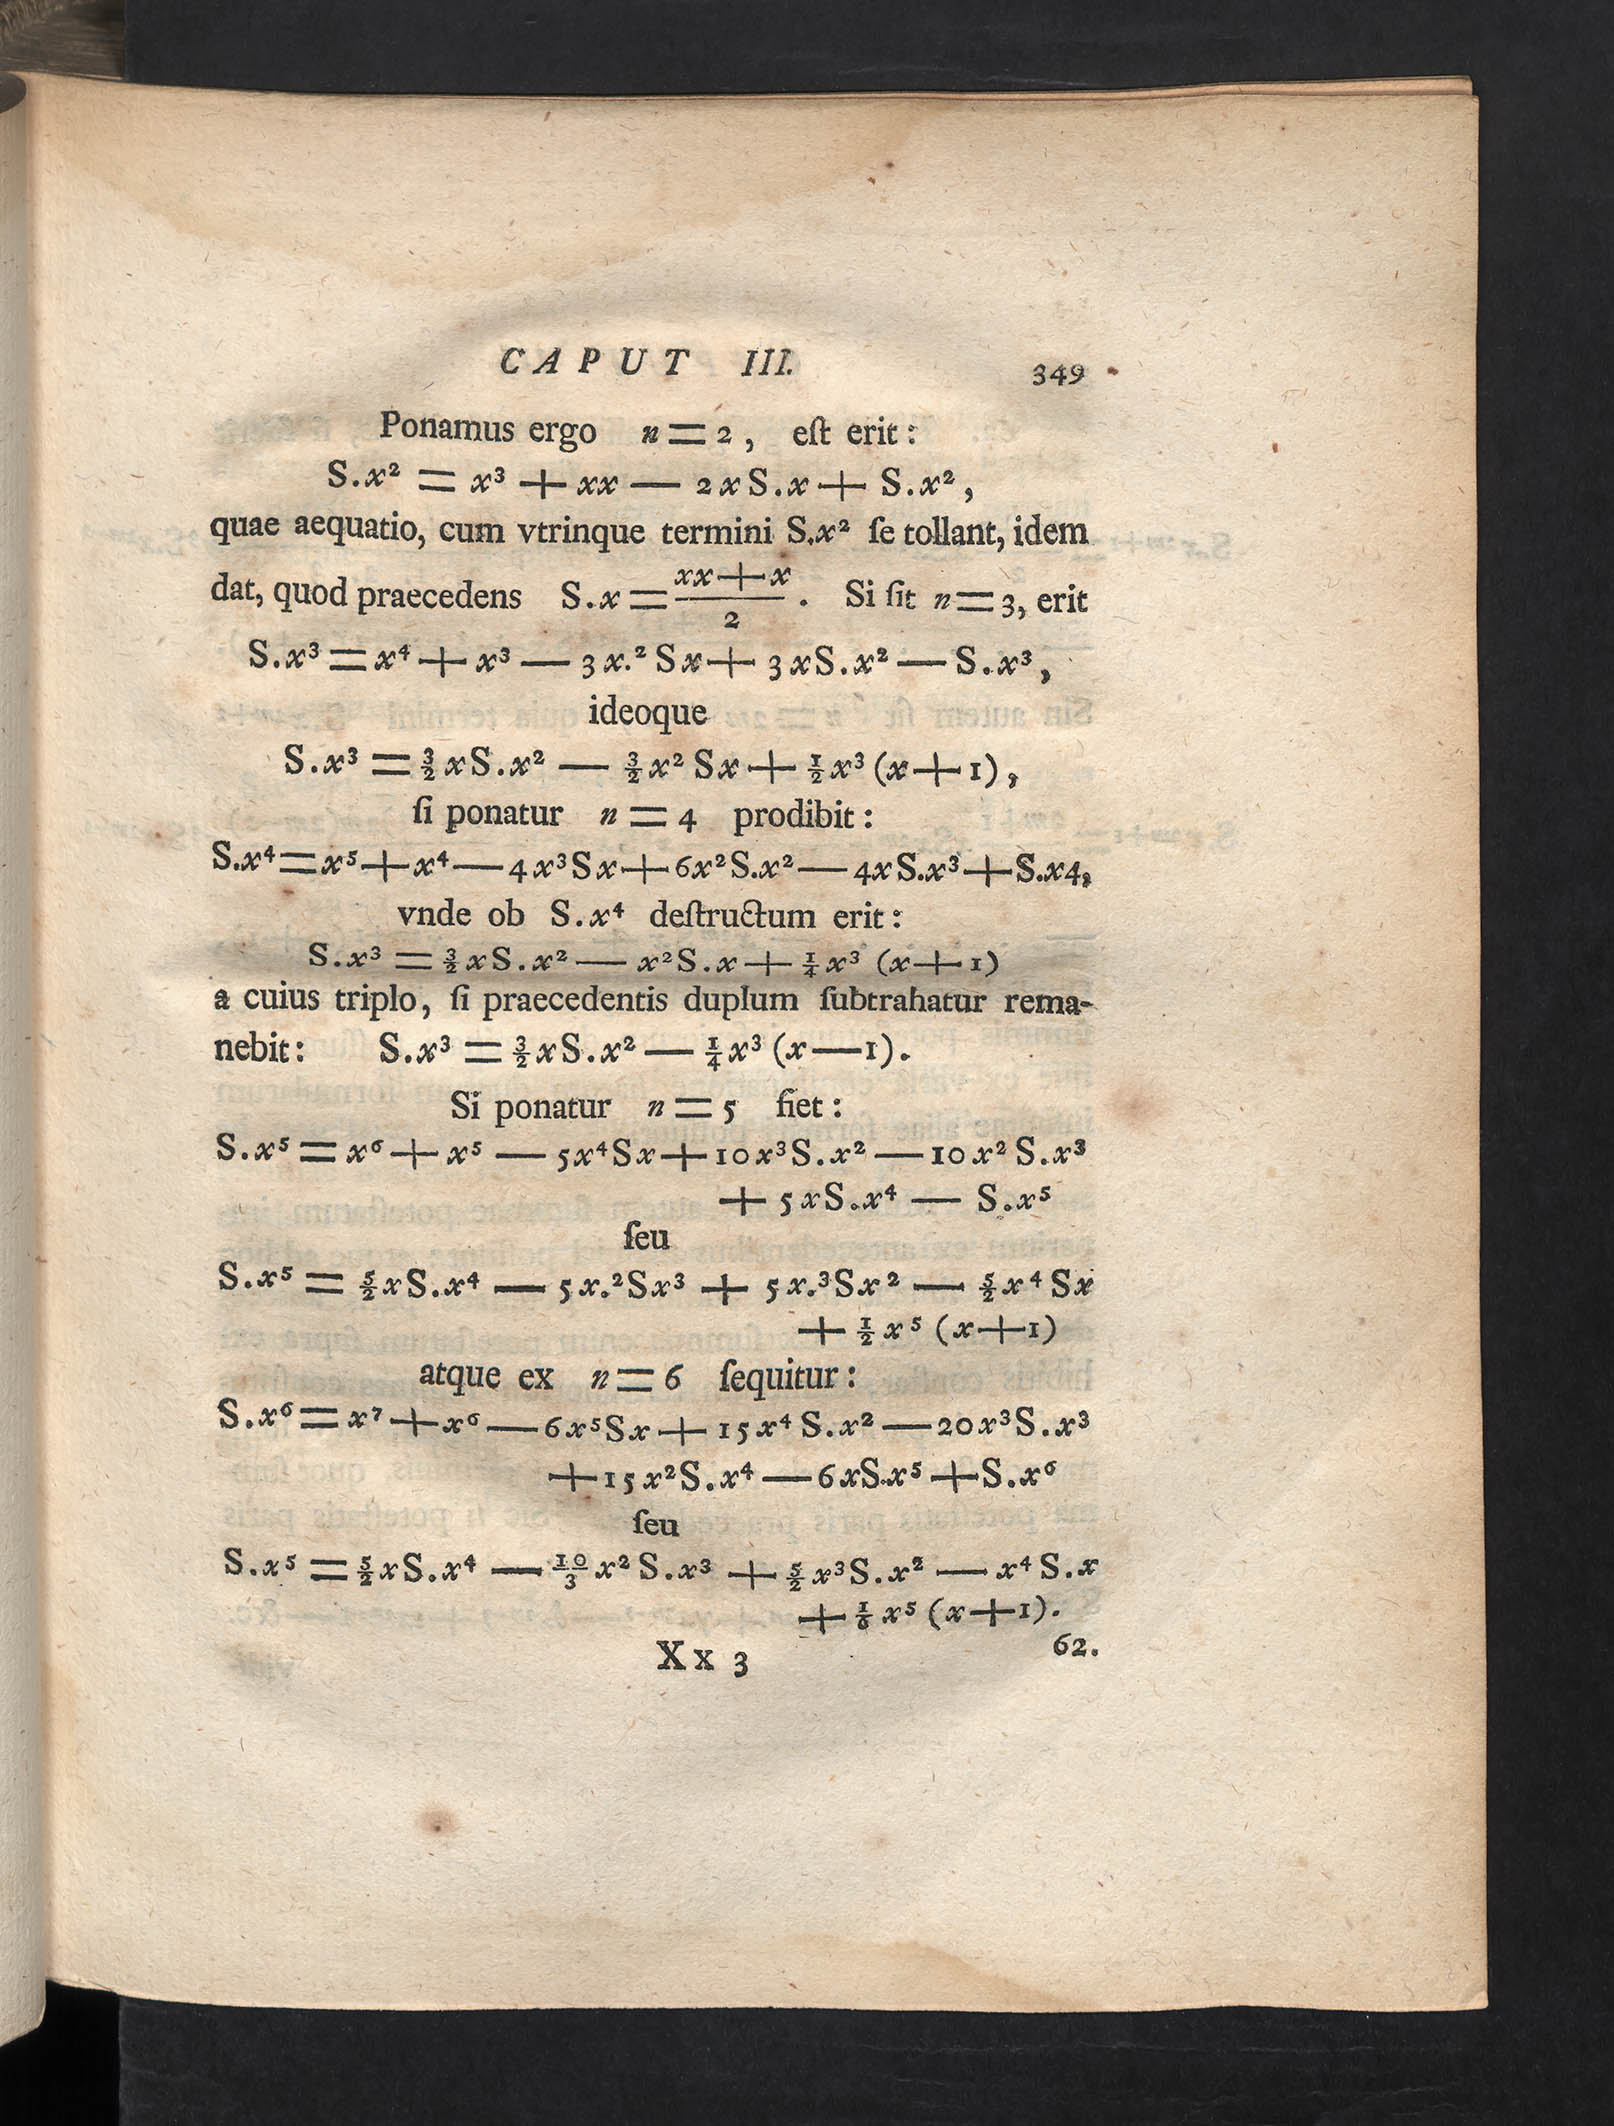 CAPUT III. 349
Ponamus ergo n = 2, eſt erit:
S.x² = x³ + xx — 2xS.x + S.x²,
quae aequatio, cum vtrinque termini S.x² ſe tollant, idem
dat, quod praecedens S.x = (xx + x)/2. Si ſit n = 3, erit
S.x³ = x⁴ + x³ — 3x.²Sx + 3xS.x² — S.x³,
ideoque
S.x³ = 3/2 xS.x² — 3/2 x² Sx + 1/2 x³ (x + 1),
ſi ponatur n = 4 prodibit:
S.x⁴ = x⁵ + x⁴ — 4x³Sx + 6x²S.x² — 4xS.x³ + S.x4,
vnde ob S.x⁴ deſtructum erit:
S.x³ = 3/2 xS.x² — x²S.x + 1/4 x³ (x + 1)
a cuius triplo, ſi praecedentis duplum ſubtrahatur rema-
nebit: S.x³ = 3/2 xS.x² — 1/4 x³ (x — 1).
Si ponatur n = 5 fiet:
S.x⁵ = x⁶ + x⁵ — 5x⁴Sx + 10x³S.x² — 10x² S.x³
+ 5xS.x⁴ — S.x⁵
ſeu
S.x⁵ = 5/2 xS.x⁴ — 5x.²Sx³ + 5x.³Sx² — 5/2 x⁴ Sx
+ 1/2 x⁵ (x + 1)
atque ex n = 6 ſequitur:
S.x⁶ = x⁷ + x⁶ — 6x⁵Sx + 15x⁴ S.x² — 20x³S.x³
+ 15x²S.x⁴ — 6xS.x⁵ + S.x⁶
ſeu
S.x⁵ = 5/2 xS.x⁴ — 10/3 x² S.x³ + 5/2 x³S.x² — x⁴ S.x
+ 1/6 x⁵ (x + 1).
Xx 3 62.